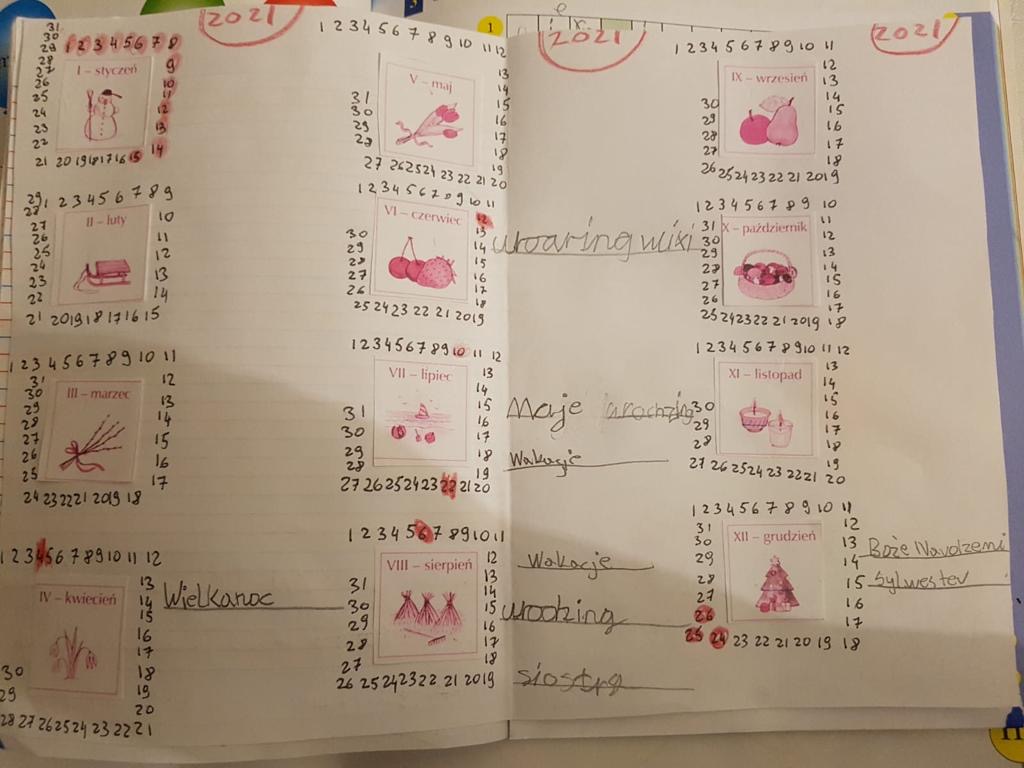 2021
2021
2021
1
31
30
29 1 2 3 4 5 6 7 8
28
27 9
26 10
25 11
24 12
23 13
22 14
21 20 19 18 17 16 15
I – styczeń
29 1 2 3 4 5 6 7 8 9
28
27 10
26 11
25
24 12
23 13
22 14
21 20 19 18 17 16 15
II – luty
1 2 3 4 5 6 7 8 9 10 11
31 12
30 13
29 14
28
27 15
26 16
25 17
24 23 22 21 20 19 18
III – marzec
1 2 3 4 5 6 7 8 9 10 11 12
13
14
15
16
17
30 18
29 19
20
28 27 26 25 24 23 22 21
IV – kwiecień
Wielkanoc
1 2 3 4 5 6 7 8 9 10 11 12
13
14
31 15
30 16
29 17
28 18
19
27 26 25 24 23 22 21 20
V – maj
1 2 3 4 5 6 7 8 9 10 11
12
30 13
29 14
28 15
27 16
26 17
18
25 24 23 22 21 20 19
VI – czerwiec
1 2 3 4 5 6 7 8 9 10 11 12
13
14
31 15
30 16
17
29 18
28 19
27 26 25 24 23 22 21 20
VII – lipiec
Moje
Wakacje
1 2 3 4 5 6 7 8 9 10 11
12
31 13
14
30 15
29 16
28 17
27 18
26 25 24 23 22 21 20 19
VIII – sierpień
Wakacje
urodzing
siostrg
1 2 3 4 5 6 7 8 9 10 11
12
13
30 14
29 15
28 16
27 17
18
26 25 24 23 22 21 20 19
IX – wrzesień
1 2 3 4 5 6 7 8 9 10
31 11
30 12
29 13
28 14
27 15
26 16
17
25 24 23 22 21 20 19 18
X – październik
1 2 3 4 5 6 7 8 9 10 11 12
13
14
30 15
29 16
28 17
18
19
27 26 25 24 23 22 21 20
XI – listopad
1 2 3 4 5 6 7 8 9 10 11
31 12
30 13
29 14
28 15
27 16
26 17
25 24 23 22 21 20 19 18
XII – grudzień
Boże
Sylwester